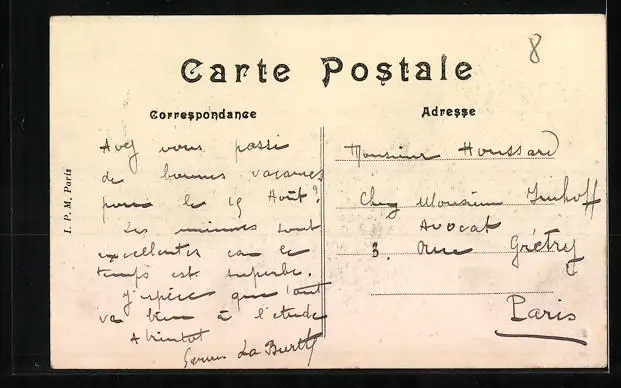 8
Carte Postale
Correspondance
Avez vous passé
de bonnes vacances
pour le 15 Août?
Les miennes sont
excellentes car le
temps est superbe.
J'espère que tout
va bien à l'etude
A bientot
Adresse
Monsieur Houssard
Chez Monsieur Imhoff
Avocat
3. Rue Grétry
Paris
I. P. M, Paris